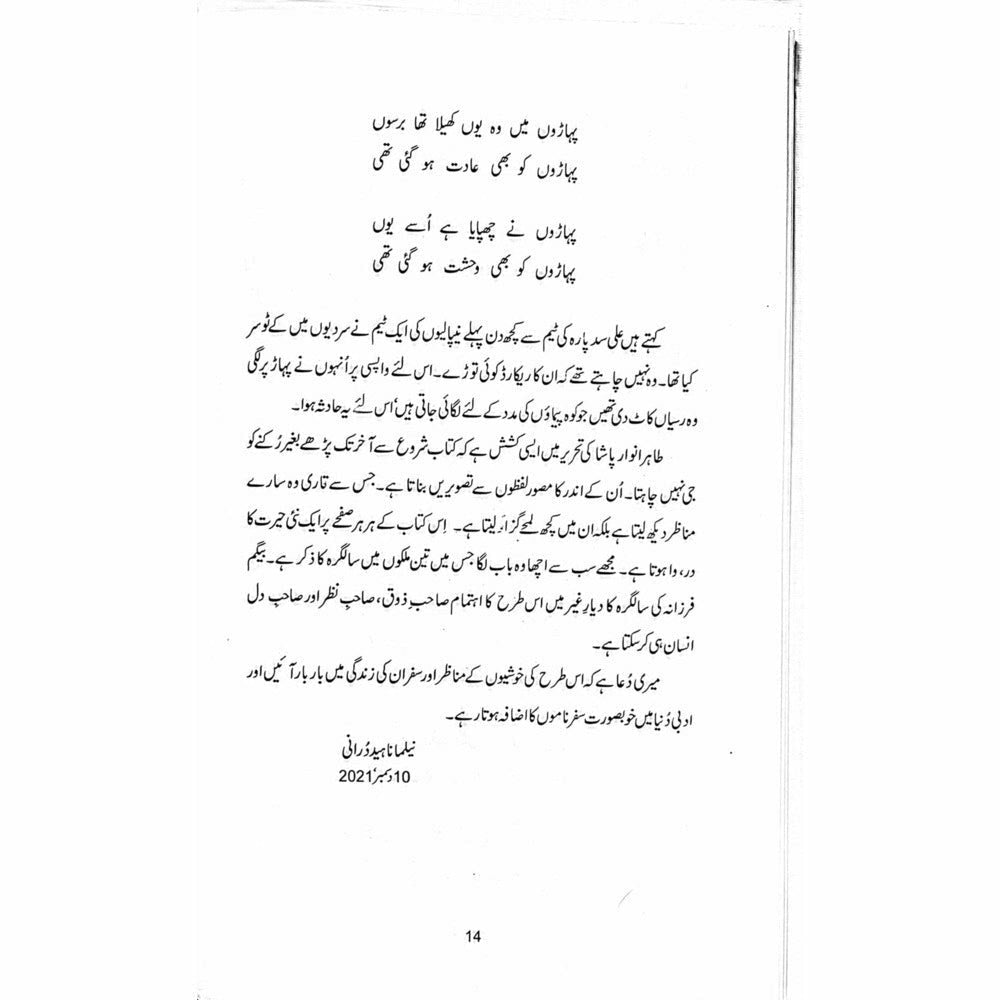 پہاڑوں میں وہ یوں کھیلا تھا برسوں
پہاڑوں کو بھی عادت ہو گئی تھی
پہاڑوں نے چھپایا ہے اُسے یوں
پہاڑوں کو بھی وحشت ہو گئی تھی
کہتے ہیں علی سدپارہ کی ٹیم سے کچھ دن پہلے نیپالیوں کی ایک ٹیم نے سردیوں میں کے ٹو سر
کیا تھا۔ وہ نہیں چاہتے تھے کہ ان کا ریکارڈ کوئی توڑے۔ اس لئے واپسی پر اُنہوں نے پہاڑ پر لگی
وہ رسیاں کاٹ دی تھیں جو کوہ پیماؤں کی مدد کے لئے لگائی جاتی ہیں‘ اس لئے یہ حادثہ ہوا۔
طاہر انوار پاشا کی تحریر میں ایسی کشش ہے کہ کتاب شروع سے آخر تک پڑھے بغیر رُکنے کو
جی نہیں چاہتا۔ اُن کے اندر کا مصور لفظوں سے تصویریں بناتا ہے۔ جس سے قاری وہ سارے
مناظر دیکھ لیتا ہے بلکہ ان میں کچھ لمحے گزار لیتا ہے۔ اِس کتاب کے ہر ہر صفحے پر ایک نئی حیرت کا
در، وا ہوتا ہے۔ مجھے سب سے اچھا وہ باب لگا جس میں تین ملکوں میں سالگرہ کا ذکر ہے۔ بیگم
فرزانہ کی سالگرہ کا دیارِ غیر میں اس طرح کا اہتمام صاحبِ ذوق، صاحبِ نظر اور صاحبِ دل
انسان ہی کر سکتا ہے۔
میری دُعا ہے کہ اس طرح کی خوشیوں کے مناظر اور سفر ان کی زندگی میں بار بار آئیں اور
ادبی دُنیا میں خوبصورت سفر ناموں کا اضافہ ہوتا رہے۔
نیلما ناہید دُرانی
10 دسمبر‘ 2021
14